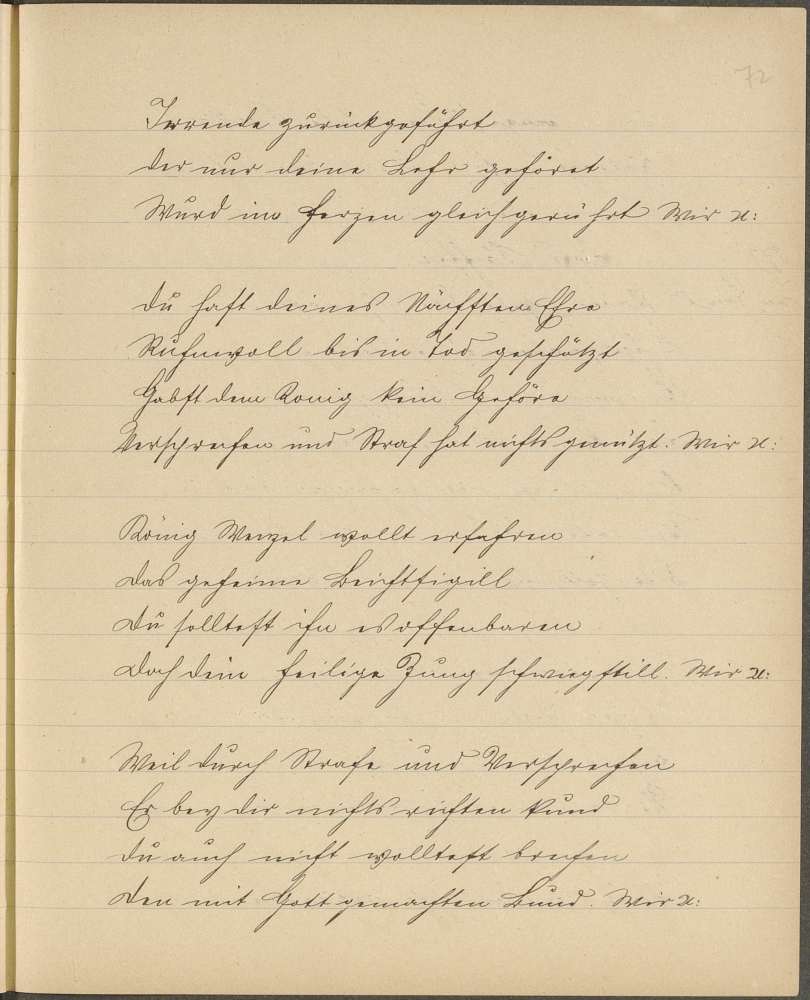 72
Irrende zurückgeführt
der nur deine Lehr gehöret
Wurd im Herzen gleich gerührt Wir ꝛc:
du hast deines Nächsten Ehre
Ruhmvoll bis in Tod geschützt
Gabst dem König kein Gehöre
Versprechen und Straf hat nichts genützt. Wir ꝛc:
König Wenzel wollt erfahren
das geheime Beichtsigill
du solltest ihn es offenbaren
doch dein heilige Zung schwieg still. Wir ꝛc:
Weil durch Strafe und Versprechen
Er bey dir nichts richten kund
du auch nicht wolltest brechen
den mit Gott gemachten Bund. Wir ꝛc: